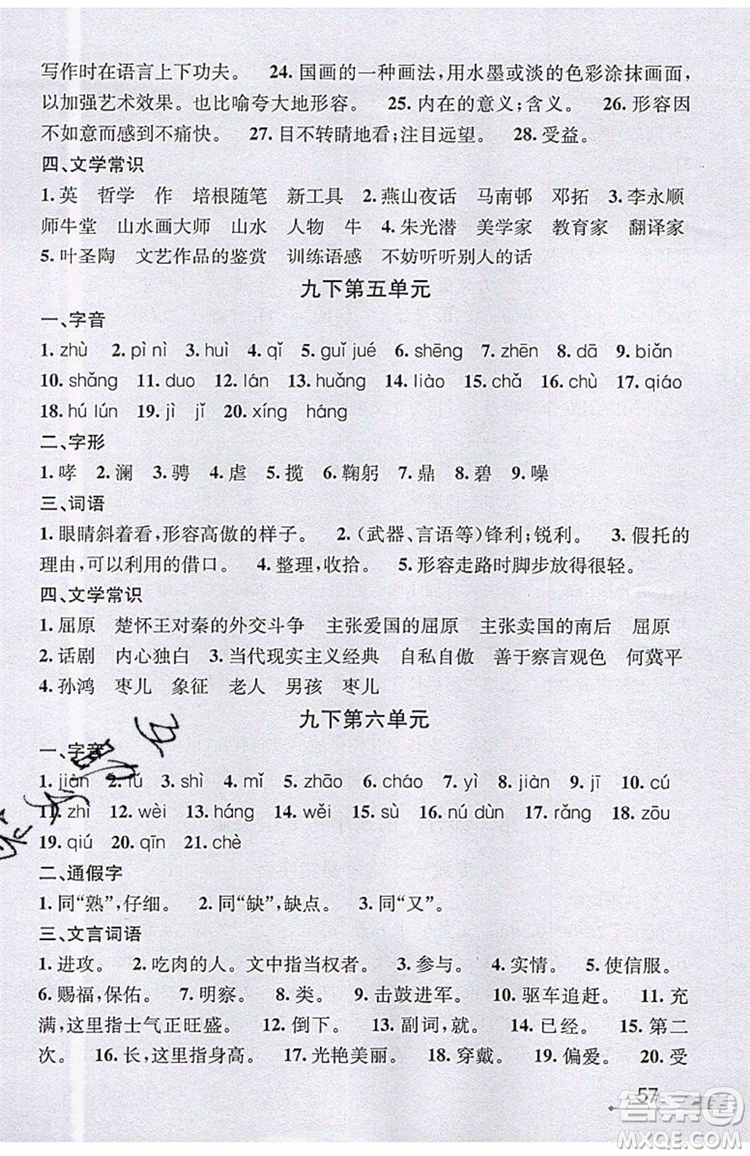 写作时在语言上下功夫。 24. 国画的一种画法,用水墨或淡的色彩涂抹画面,
以加强艺术效果。也比喻夸大地形容。 25. 内在的意义;含义。 26. 形容因
不如意而感到不痛快。 27. 目不转睛地看;注目远望。 28. 受益。
四、文学常识
1. 英 哲学 作 培根随笔 新工具 2. 燕山夜话 马南邨 邓拓 3. 李永顺
师牛堂 山水画大师 山水 人物 牛 4. 朱光潜 美学家 教育家 翻译家
5. 叶圣陶 文艺作品的鉴赏 训练语感 不妨听听别人的话
九下第五单元
一、字音
1. zhù 2. pì nì 3. huì 4. qǐ 5. guǐ jué 6. shēng 7. zhēn 8. dā 9. biǎn
10. shǎng 11. duo 12. lán 13. huǎng 14. liào 15. chǎ 16. chù 17. qiáo
18. hú lún 19. jì jǐ 20. xíng háng
二、字形
1. 哮 2. 澜 3. 骋 4. 虐 5. 揽 6. 鞠躬 7. 鼎 8. 碧 9. 噪
三、词语
1. 眼睛斜着看,形容高傲的样子。 2. (武器、言语等)锋利;锐利。 3. 假托的
理由,可以利用的借口。 4. 整理,收拾。 5. 形容走路时脚步放得很轻。
四、文学常识
1. 屈原 楚怀王对秦的外交斗争 主张爱国的屈原 主张卖国的南后 屈原
2. 话剧 内心独白 3. 当代现实主义经典 自私自傲 善于察言观色 何冀平
4. 孙鸿 枣儿 象征 老人 男孩 枣儿
九下第六单元
一、字音
1. jiàn 2. fú 3. shì 4. mǐ 5. zhāo 6. cháo 7. yí 8. jiàn 9. jī 10. cú
11. zhì 12. wèi 13. háng 14. wěi 15. sù 16. nú dùn 17. rǎng 18. zī
19. qiú 20. qīn 21. chè
二、通假字
1. 同“熟”,仔细。 2. 同“缺”,缺点。 3. 同“又”。
三、文言词语
1. 进攻。 2. 吃肉的人。文中指当权者。 3. 参与。 4. 实情。 5. 使信服。
6. 赐福,保佑。 7. 明察。 8. 类。 9. 击鼓进军。 10. 驱车追赶。 11. 充
满,这里指士气正旺盛。 12. 倒下。 13. 副词,就。 14. 已经。 15. 第二
次。 16. 长,这里指身高。 17. 光艳美丽。 18. 穿戴。 19. 偏爱。 20. 受
57
答案圈
MXQE.COM